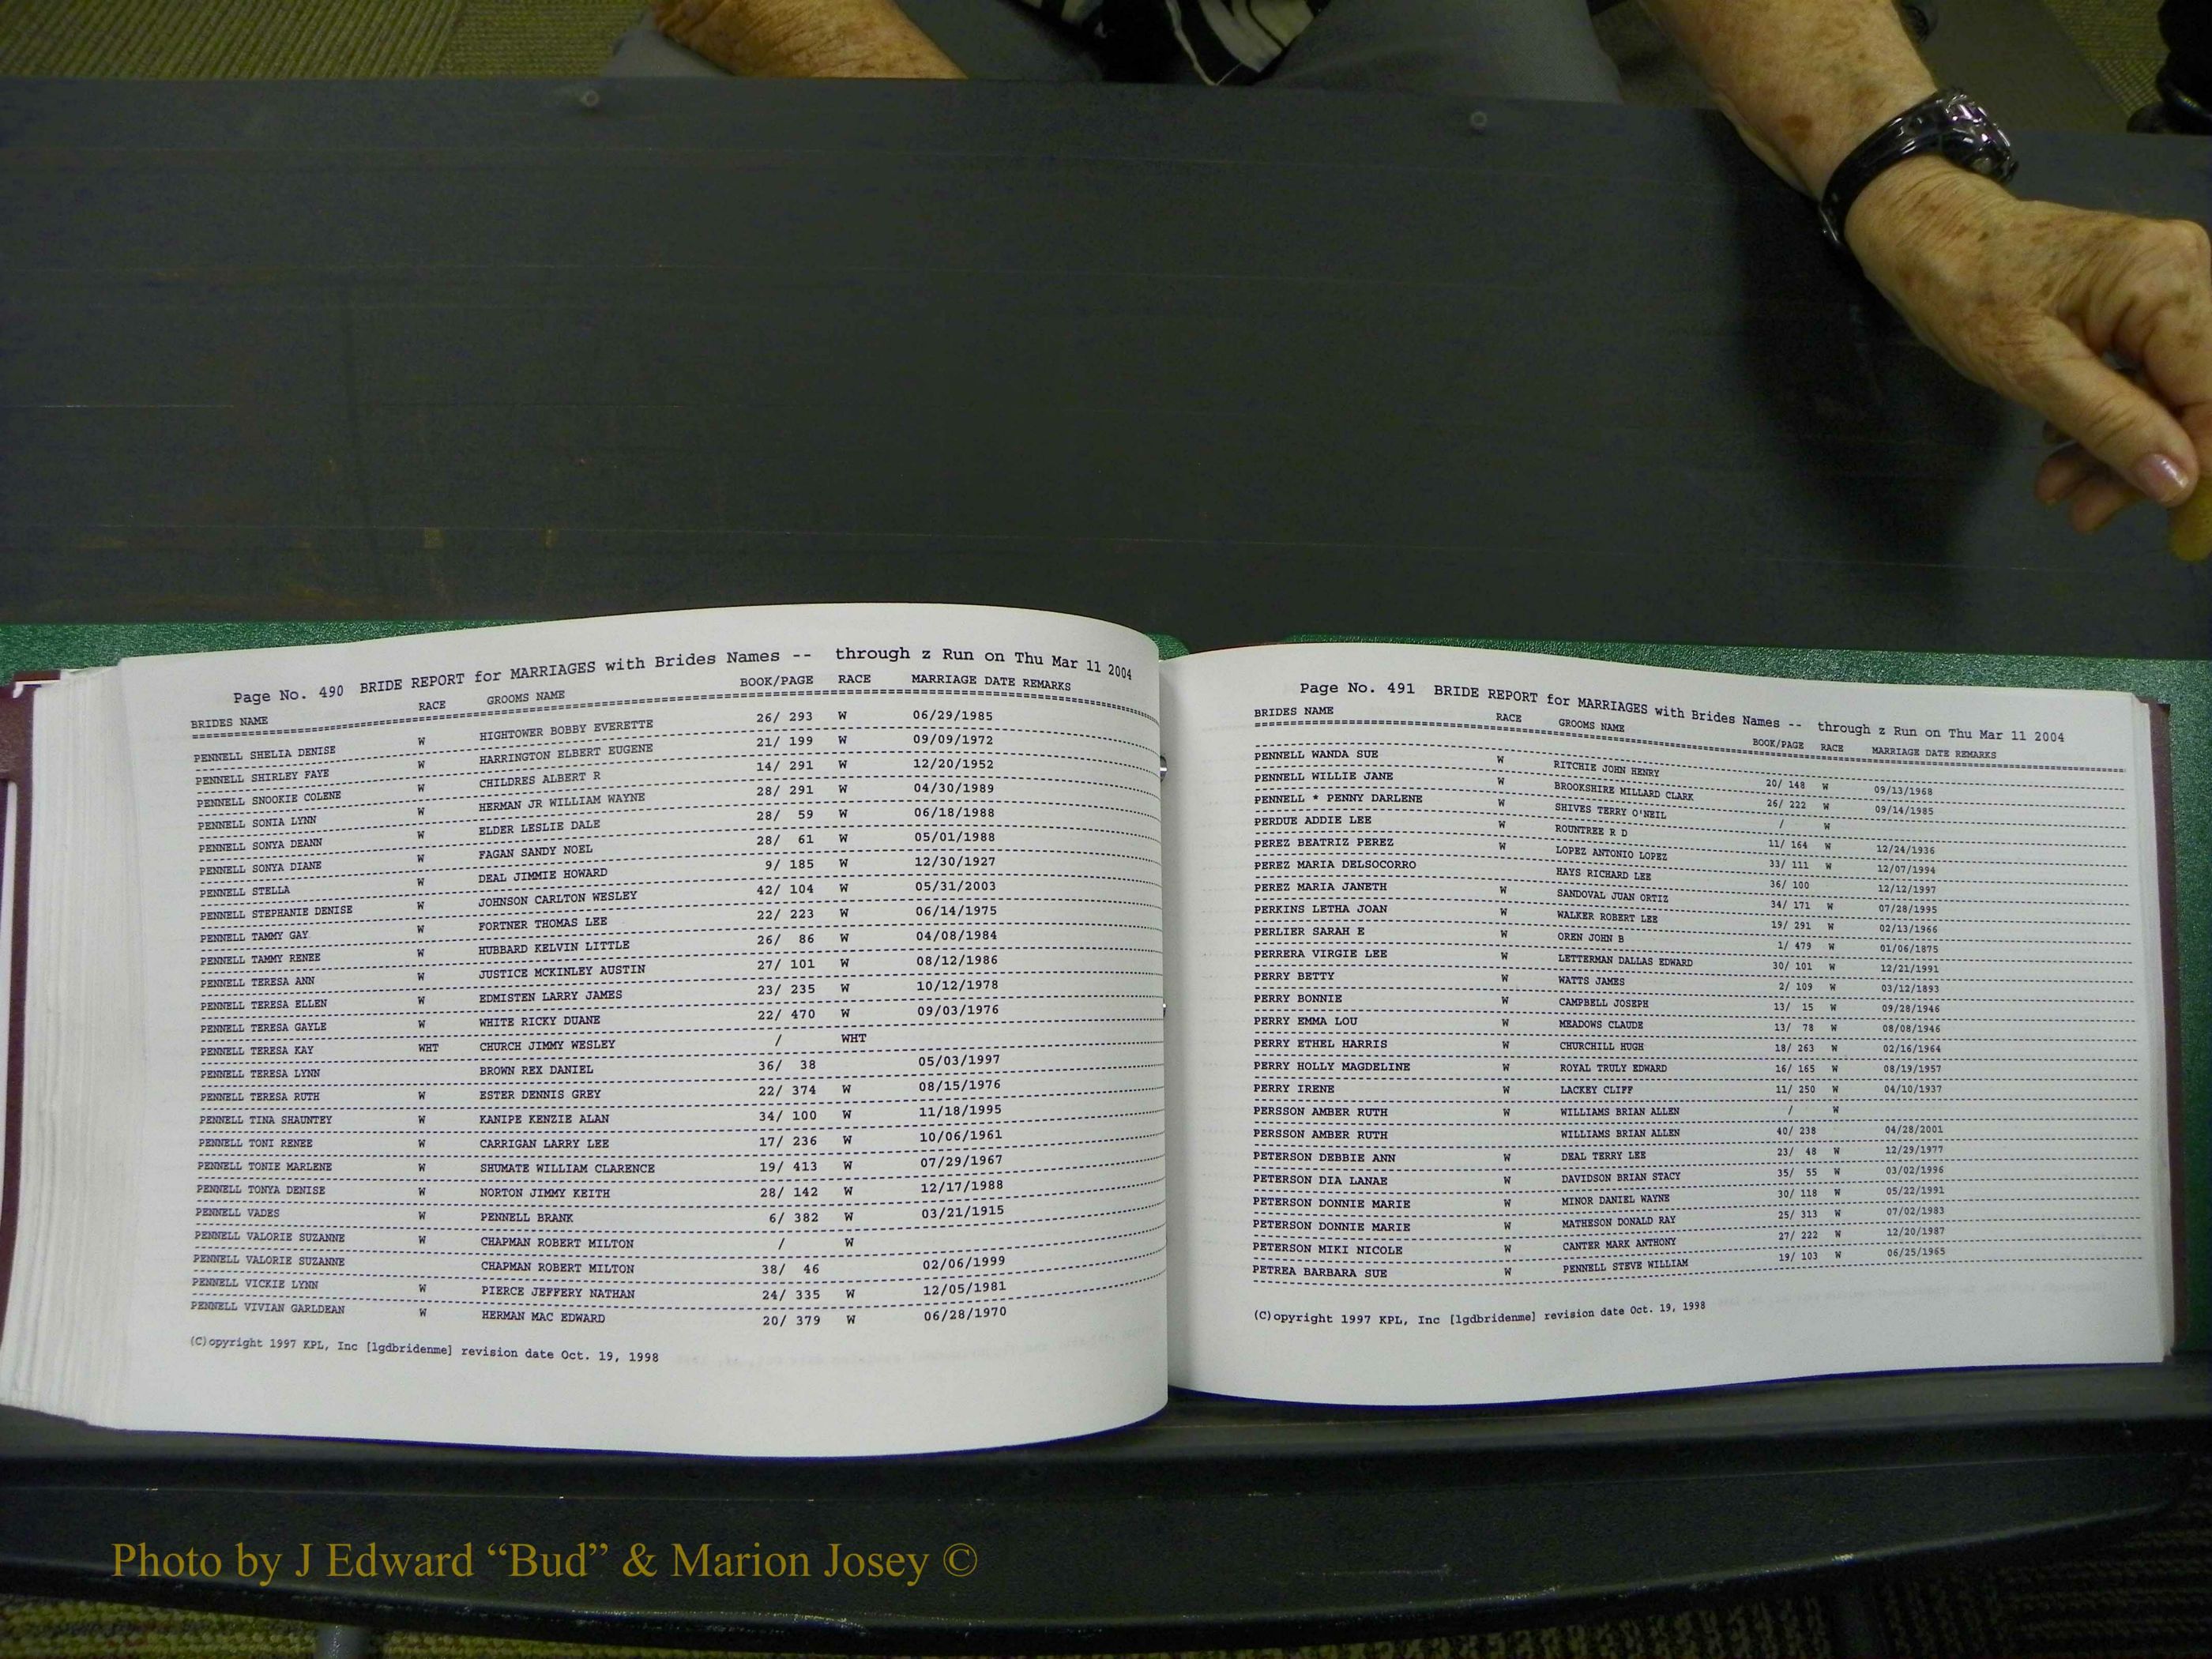 Page No. 490 BRIDE REPORT for MARRIAGES with Brides Names -- through z Run on Thu Mar 11 2004
BRIDES NAME RACE GROOMS NAME BOOK/PAGE RACE MARRIAGE DATE REMARKS
PENNELL SHELIA DENISE W HIGHTOWER BOBBY EVERETTE 26/ 293 W 06/29/1985
PENNELL SHIRLEY FAYE W HARRINGTON ELBERT EUGENE 21/ 199 W 09/09/1972
PENNELL SNOOKIE COLENE W CHILDRES ALBERT R 14/ 291 W 12/20/1952
PENNELL SONIA LYNN W HERMAN JR WILLIAM WAYNE 28/ 291 W 04/30/1989
PENNELL SONYA DEANN W ELDER LESLIE DALE 28/ 59 W 06/18/1988
PENNELL SONYA DIANE W FAGAN SANDY NOEL 28/ 61 W 05/01/1988
PENNELL STELLA W DEAL JIMMIE HOWARD 9/ 185 W 12/30/1927
PENNELL STEPHANIE DENISE W JOHNSON CARLTON WESLEY 42/ 104 W 05/31/2003
PENNELL TAMMY GAY W FORTNER THOMAS LEE 22/ 223 W 06/14/1975
PENNELL TAMMY RENEE W HUBBARD KELVIN LITTLE 26/ 86 W 04/08/1984
PENNELL TERESA ANN W JUSTICE MCKINLEY AUSTIN 27/ 101 W 08/12/1986
PENNELL TERESA ELLEN W EDMISTEN LARRY JAMES 23/ 235 W 10/12/1978
PENNELL TERESA GAYLE W WHITE RICKY DUANE 22/ 470 W 09/03/1976
PENNELL TERESA KAY WHT CHURCH JIMMY WESLEY / WHT
PENNELL TERESA LYNN BROWN REX DANIEL 36/ 38 05/03/1997
PENNELL TERESA RUTH W ESTER DENNIS GREY 22/ 374 W 08/15/1976
PENNELL TINA SHAUNTEY W KANIPE KENZIE ALAN 34/ 100 W 11/18/1995
PENNELL TONI RENEE W CARRIGAN LARRY LEE 17/ 236 W 10/06/1961
PENNELL TONIE MARLENE W SHUMATE WILLIAM CLARENCE 19/ 413 W 07/29/1967
PENNELL TONYA DENISE W NORTON JIMMY KEITH 28/ 142 W 12/17/1988
PENNELL VADES W PENNELL BRANK 6/ 382 W 03/21/1915
PENNELL VALORIE SUZANNE W CHAPMAN ROBERT MILTON / W
PENNELL VALORIE SUZANNE CHAPMAN ROBERT MILTON 38/ 46 02/06/1999
PENNELL VICKIE LYNN W PIERCE JEFFERY NATHAN 24/ 335 W 12/05/1981
PENNELL VIVIAN GARLDEAN W HERMAN MAC EDWARD 20/ 379 W 06/28/1970
(C)opyright 1997 KPL, Inc [lgdbridenme] revision date Oct. 19, 1998
Page No. 491 BRIDE REPORT for MARRIAGES with Brides Names -- through z Run on Thu Mar 11 2004
BRIDES NAME RACE GROOMS NAME BOOK/PAGE RACE MARRIAGE DATE REMARKS
PENNELL WANDA SUE W RITCHIE JOHN HENRY 20/ 148 W 09/13/1968
PENNELL WILLIE JANE W BROOKSHIRE MILLARD CLARK 26/ 222 W 09/14/1985
PENNELL * PENNY DARLENE W SHIVES TERRY O'NEIL / W
PERDUE ADDIE LEE W ROUNTREE R D 11/ 164 W 12/24/1936
PEREZ BEATRIZ PEREZ W LOPEZ ANTONIO LOPEZ 33/ 111 W 12/07/1994
PEREZ MARIA DELSOCORRO HAYS RICHARD LEE 36/ 100 12/12/1997
PEREZ MARIA JANETH W SANDOVAL JUAN ORTIZ 34/ 171 W 07/28/1995
PERKINS LETHA JOAN W WALKER ROBERT LEE 19/ 291 W 02/13/1966
PERLIER SARAH E W OREN JOHN B 1/ 479 W 01/06/1875
PERRERA VIRGIE LEE W LETTERMAN DALLAS EDWARD 30/ 101 W 12/21/1991
PERRY BETTY W WATTS JAMES 2/ 109 W 03/12/1893
PERRY BONNIE W CAMPBELL JOSEPH 13/ 15 W 09/28/1946
PERRY EMMA LOU W MEADOWS CLAUDE 13/ 78 W 08/08/1946
PERRY ETHEL HARRIS W CHURCHILL HUGH 18/ 263 W 02/16/1964
PERRY HOLLY MAGDELINE W ROYAL TRULY EDWARD 16/ 165 W 08/19/1957
PERRY IRENE W LACKEY CLIFF 11/ 250 W 04/10/1937
PERSSON AMBER RUTH W WILLIAMS BRIAN ALLEN / W
PERSSON AMBER RUTH WILLIAMS BRIAN ALLEN 40/ 238 04/28/2001
PETERSON DEBBIE ANN W DEAL TERRY LEE 23/ 48 W 12/29/1977
PETERSON DIA LANAE W DAVIDSON BRIAN STACY 35/ 55 W 03/02/1996
PETERSON DONNIE MARIE W MINOR DANIEL WAYNE 30/ 118 W 05/22/1991
PETERSON DONNIE MARIE W MATHESON DONALD RAY 25/ 313 W 07/02/1983
PETERSON MIKI NICOLE W CANTER MARK ANTHONY 27/ 222 W 12/20/1987
PETREA BARBARA SUE W PENNELL STEVE WILLIAM 19/ 103 W 06/25/1965
(C)opyright 1997 KPL, Inc [lgdbridenme] revision date Oct. 19, 1998
Photo by J Edward “Bud” & Marion Josey ©